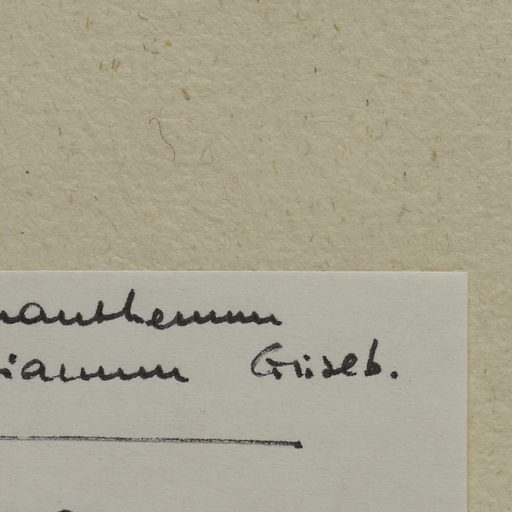 nanthemum
ianum Griseb.